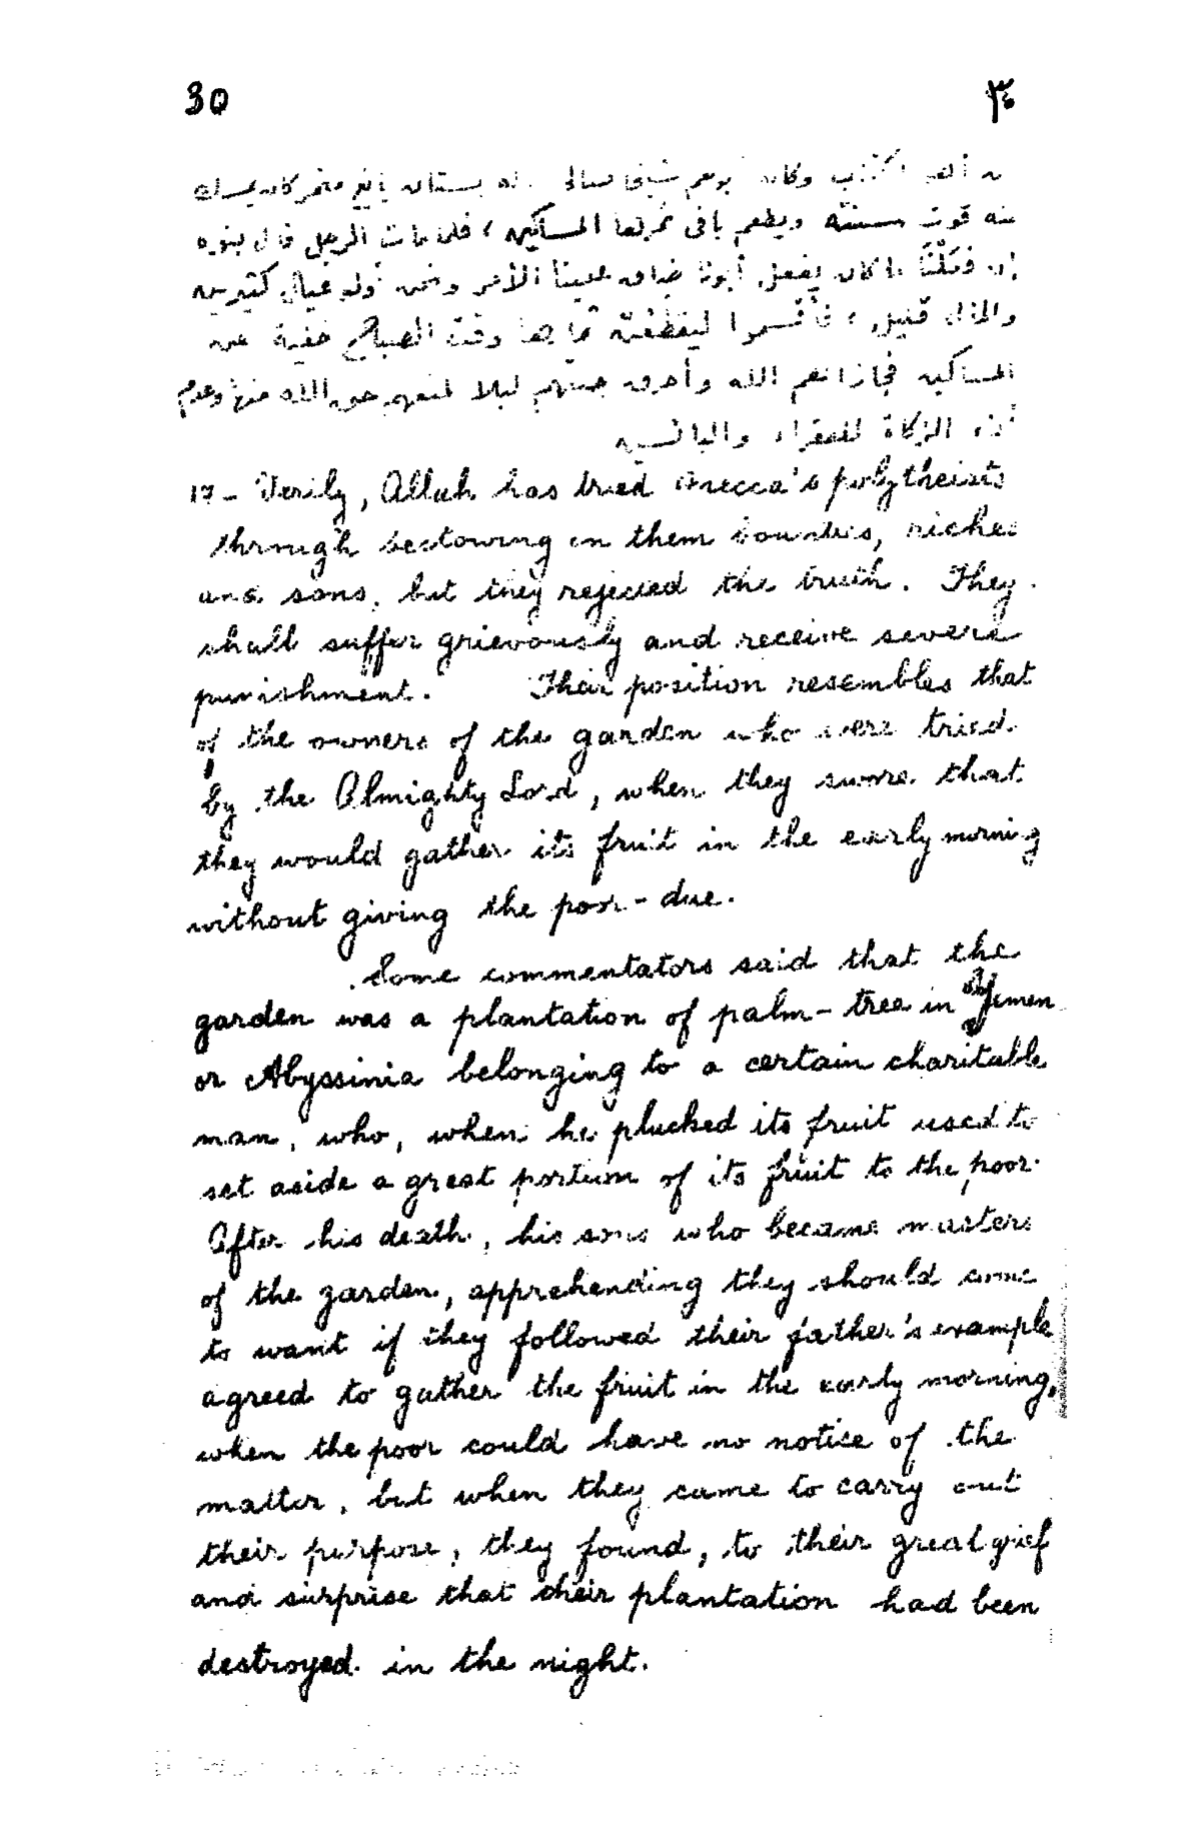 30 ٣٠
من أهل الكتاب وكان أبوهم شيخا صالحا له بستان يانع مثمر كان يمسك
منه قوت سنته ويطعم باقى ثمرتها المساكين ، فلما مات الرجل قال بنوه
إن فعلنا ما كان يفعل أبونا ضاق علينا الأمر ونحن أولو عيال كثيرين
والمال قليل ، فأقسموا ليقطعن ثمارها وقت الصباح خفية عن
المساكين فجازاهم الله وأحرق جنتهم ليلا لمنعهم حق الله منها وعدم
الزكاة للفقراء والبائسين
17 - Verily, Allah has tried Mecca's polytheists
through bestowing on them bounties, riches
and sons, but they rejected the truth. They
shall suffer grievously and receive severe
punishment. Their position resembles that
of the owners of the garden who were tried
by the Almighty Lord, when they swore that
they would gather its fruit in the early morning
without giving the poor-due.
Some commentators said that the
garden was a plantation of palm-tree in Yemen
or Abyssinia belonging to a certain charitable
man, who, when he plucked its fruit used to
set aside a great portion of its fruit to the poor.
After his death, his sons who became masters
of the garden, apprehending they should come
to want if they followed their father's example
agreed to gather the fruit in the early morning,
when the poor could have no notice of the
matter, but when they came to carry out
their purpose, they found, to their great grief
and surprise that their plantation had been
destroyed in the night.